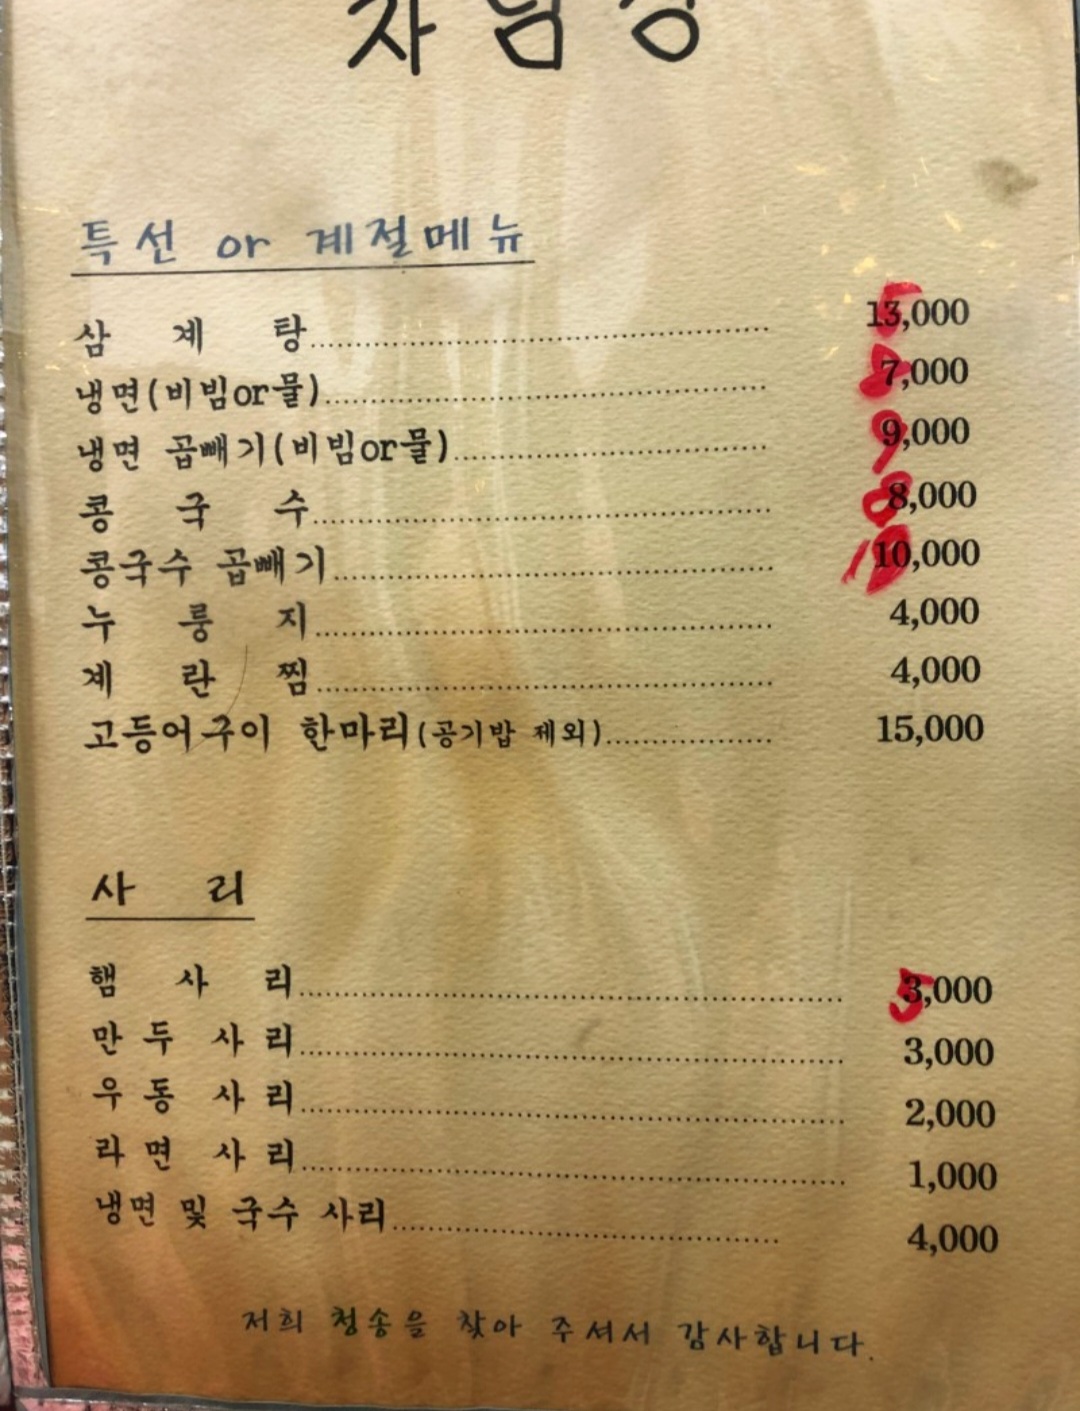 차림장
특선 or 계절메뉴
삼 계 탕 13,000
냉면(비빔or물) 7,000
냉면 곱빼기(비빔or물) 9,000
콩 국 수 8,000
콩국수 곱빼기 10,000
누 룽 지 4,000
계 란 찜 4,000
고등어구이 한마리(공기밥 제외) 15,000
사 리
햄 사 리 3,000
만 두 사 리 3,000
우 동 사 리 2,000
라 면 사 리 1,000
냉면 및 국수 사리 4,000
저희 청송을 찾아 주셔서 감사합니다.